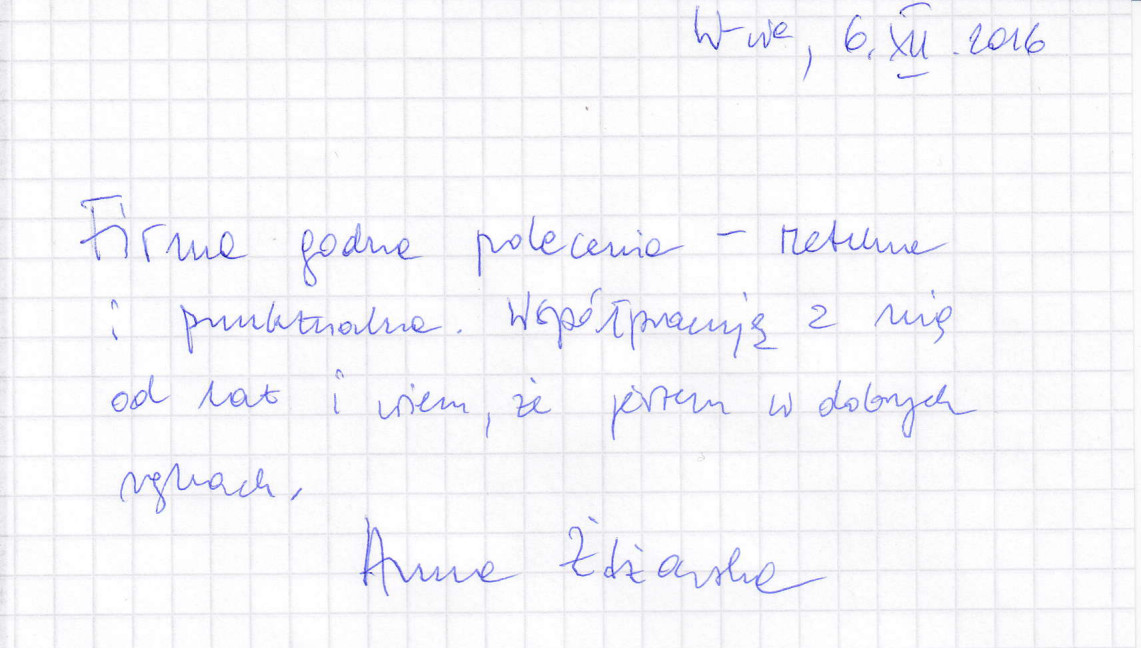 W-wa, 6.XII.2016
Firma godna polecenia – rzetelna
i punktualna. Współpracuję z nią
od lat i wiem, że jestem w dobrych
rękach.
Anna Żdżarska